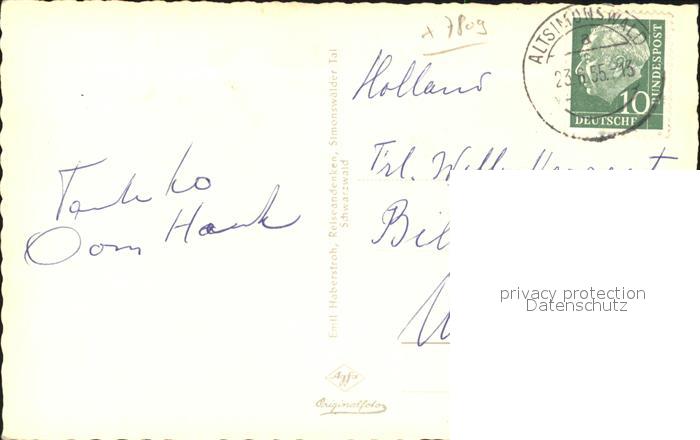 x 7809
ALTSIMONSWALD
a
23.6.55.-13
10
DEUTSCHE
BUNDESPOST
Holland
Frl. Willy
Bil
Tante Lo
Oom Henk
Emil Haberstroh, Reiseandenken, Simonswälder Tal
Schwarzwald
Agfa
Originalfoto
privacy protection
Datenschutz